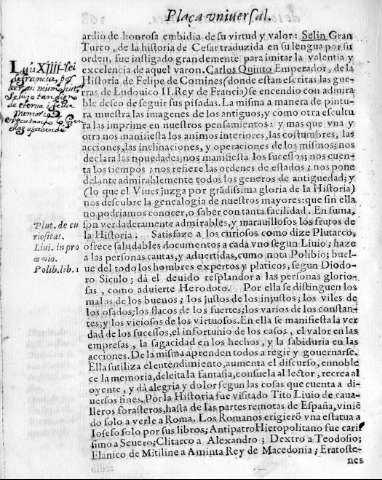 Plaça vniuersal.
ardio de honrosa embidia de su virtud y valor: Selin Gran
Turco, de la historia de Cesar traduzida en su lengua por su
orden, fue instigado grandemente para imitar la valentia y
excelencia de aquel varon. Carlos Quinto Emperador, de la
Historia de Felipe de Comines (donde estan escritas las gue-
rras de Ludouico II. Rey de Francia) se encendio con admira
ble deseo de seguir sus pisadas. La misma a manera de pintu-
ra muestra las imagenes de los antiguos, y como otra escultu
ra las imprime en nuestros pensamientos: y mas que vna y
otra nos manifiesta los animos interiores, las costumbres, las
acciones, las inclinaciones, y operaciones de los mismos; nos
declara las nouedades; nos manifiesta los sucesos; nos cuen-
ta los tiempos; nos refiere las ordenes de estados; nos pone
delante admirablemente todos los generos de antiguedad; y
(lo que el Viues juzga por grãdissima gloria de la Historia)
nos descubre la genealogia de nuestros mayores: que sin ella
no podriamos conocer, o saber con tanta facilidad. En suma,
son verdaderamente admirables, y marauillosos los frutos de
la Historia. Satisfaze a los curiosos como dize Plutarco,
ofrece saludables documentos a cada vno segun Liuio; haze
a las personas cautas, y aduertidas, como nota Polibio; buel-
ue del todo los hombres expertos y platicos, segun Diodo-
ro Siculo; dà el deuido resplandor a las personas glorio-
sas, como aduierte Herodoto. Por ella se distinguen los
malos de los buenos; los justos de los injustos; los viles de
los osados; los flacos de los fuertes; los varios de los constan-
tes; y los viciosos de los virtuosos. En ella se manifiesta la ver
dad de los sucesos, el infortunio de los casos, el valor en las
empresas, la sagacidad en los hechos, y la sabiduria en las
acciones. De la misma aprenden todos a regir y gouernarse.
Ella sutiliza el entendimiento, aumenta el discurso, ennoble
ce la memoria, deleita la fantasia, consuela al lector, recrea al
oyente, y da alegria y dolor segun las cosas que cuenta a di-
uersos fines. Por la Historia fue visitado Tito Liuio de caua-
lleros forasteros, hasta de las partes remotas de España, vinie
do solo a verle a Roma. Los Romanos erigierõ vna estatua a
Iosefo solo por sus libros; Antipatro Hieropolitano fue caris
simo a Seuero; Clitarco a Alexandro; Dextro a Teodosio;
Elanico de Mitiline a Aminta Rey de Macedonia; Eratoste-
nes
Luis XIIII
Plut. de cu
riositat.
Liui. in pro
œmio.
Polib. lib. 1